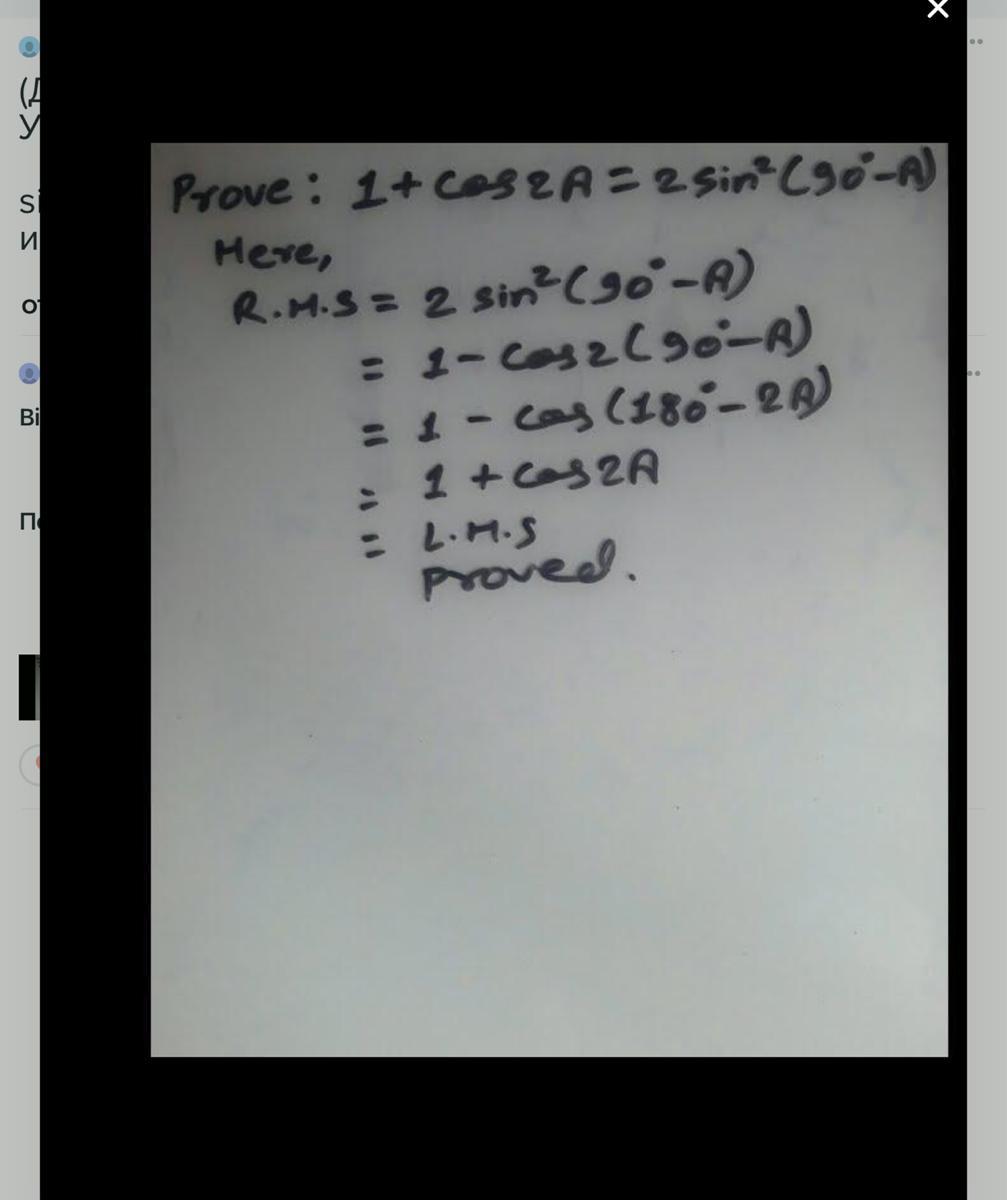 (Д
У
si
и
от
Ві
По
Prove: 1 + cos 2A = 2 sin²(90°-A)
Here,
R.H.S = 2 sin²(90°-A)
= 1 - cos 2(90°-A)
= 1 - cos (180°- 2A)
= 1 + cos 2A
= L.H.S
proved.